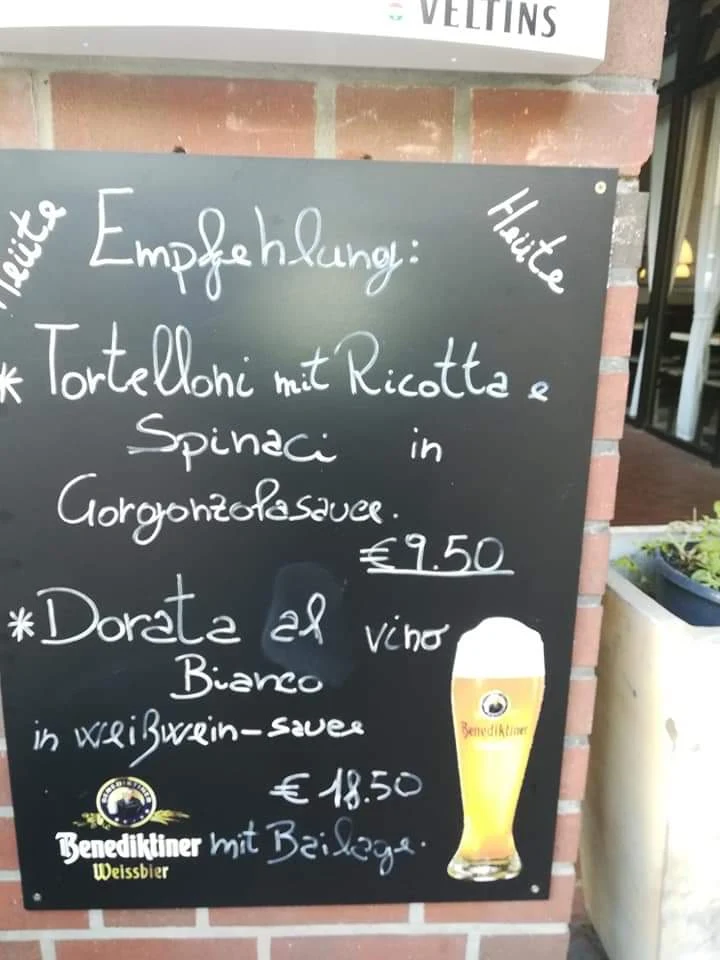 VELTINS
Heüte
Empfehlung:
Heüte
* Tortelloni mit Ricotta e
Spinaci in
Gorgonzolasauce.
€9.50
*Dorata al vino
Bianco
in weißwein-sauce
€ 18.50
mit Bailage.
BENEDIKTINER
Benediktiner
Weissbier
Benediktiner